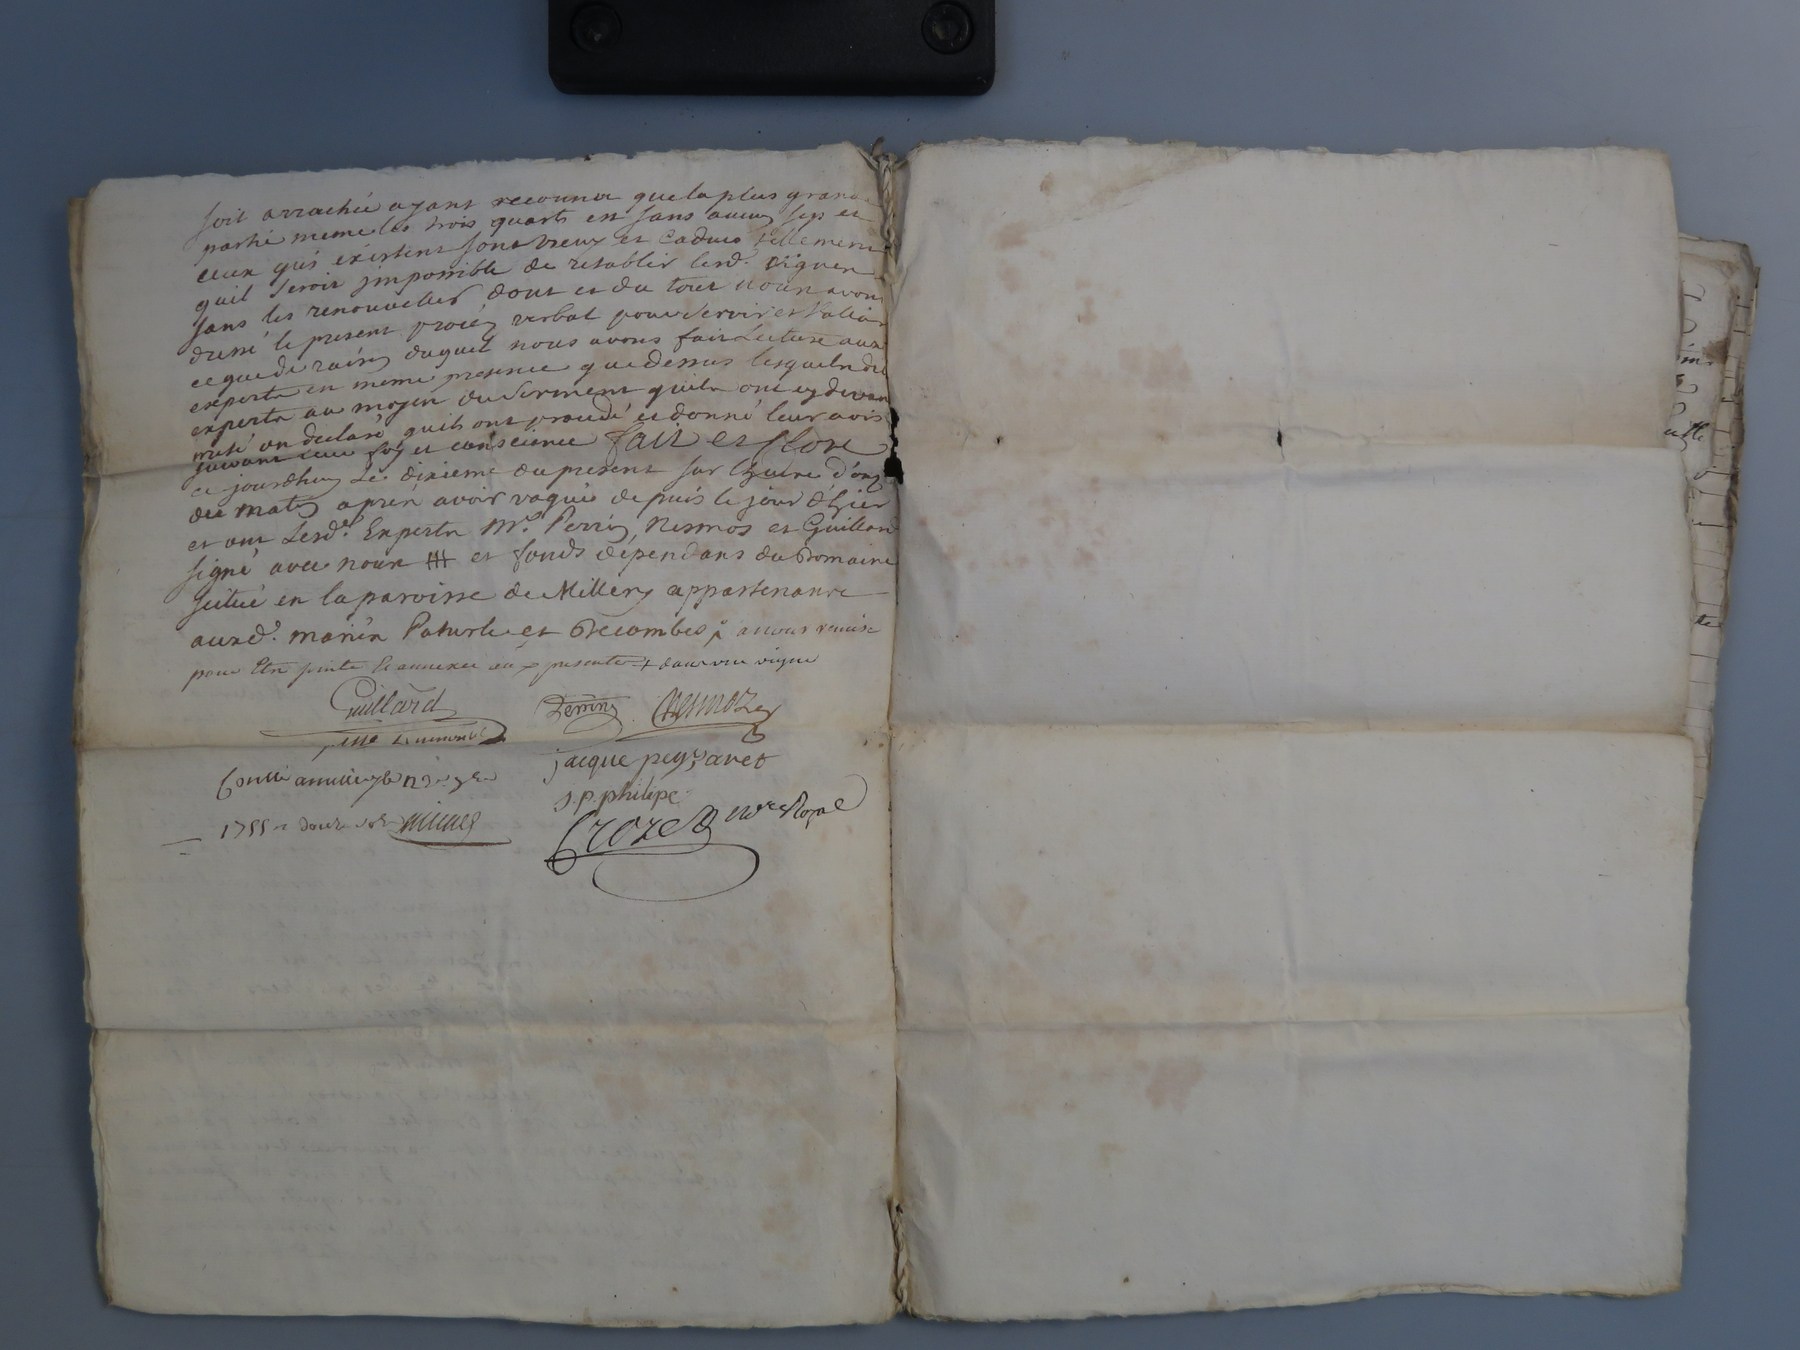 soit arrachée ayant reconnu que la plus grande
partie meme les trois quarts est sans aucuns seps et
ceux qui éxistent sont vieux et caducs tellement
quil seroit jmpossible de retablir lesd. vignes
sans les renouveller dont et du tout nous avons
dressé le present procéz verbal pour servir et valloir
ce que de raison duquel nous avons fait lecture aux
experts en meme presence que dessus lesquels dits
experts au moyen du serment quils ont cy devant
presté on declaré quils ont procedé et donné leur avis
suivant leur foy et conscience fait et clos
ce jourdhuy le dixieme du present sur lheure d'onze
du matin aprés avoir vaqué depuis le jour d'hier
et ont lesd. Experts Mrs. Perrin, Nesmos et Guillard
signé avec nous et fonds dépendans du Domaine
scitué en la paroisse de Millery appartenant
auxd. mariés Paturle et Decombes a nous remise
pour être jointe & annexée au presente + dans une vigne
Guillard
Perrin Nesmoz
jacque peyzaret
j. p. philipe
Crozet Nre Royal
1755